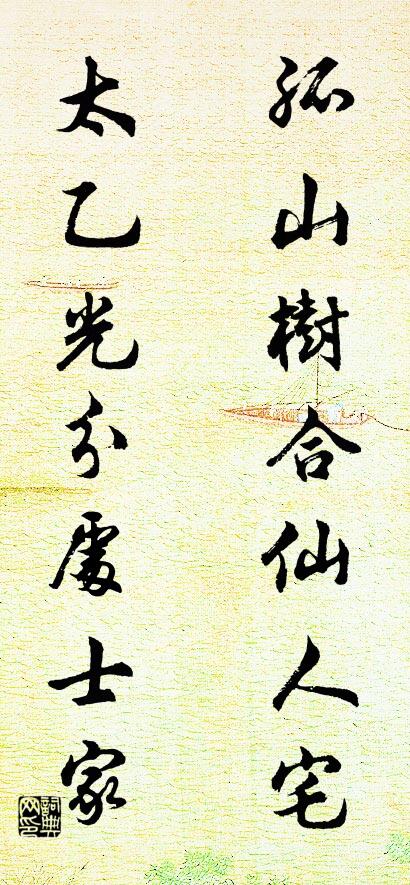 孤山樹合仙人宅
太乙光分處士家
詞典網印